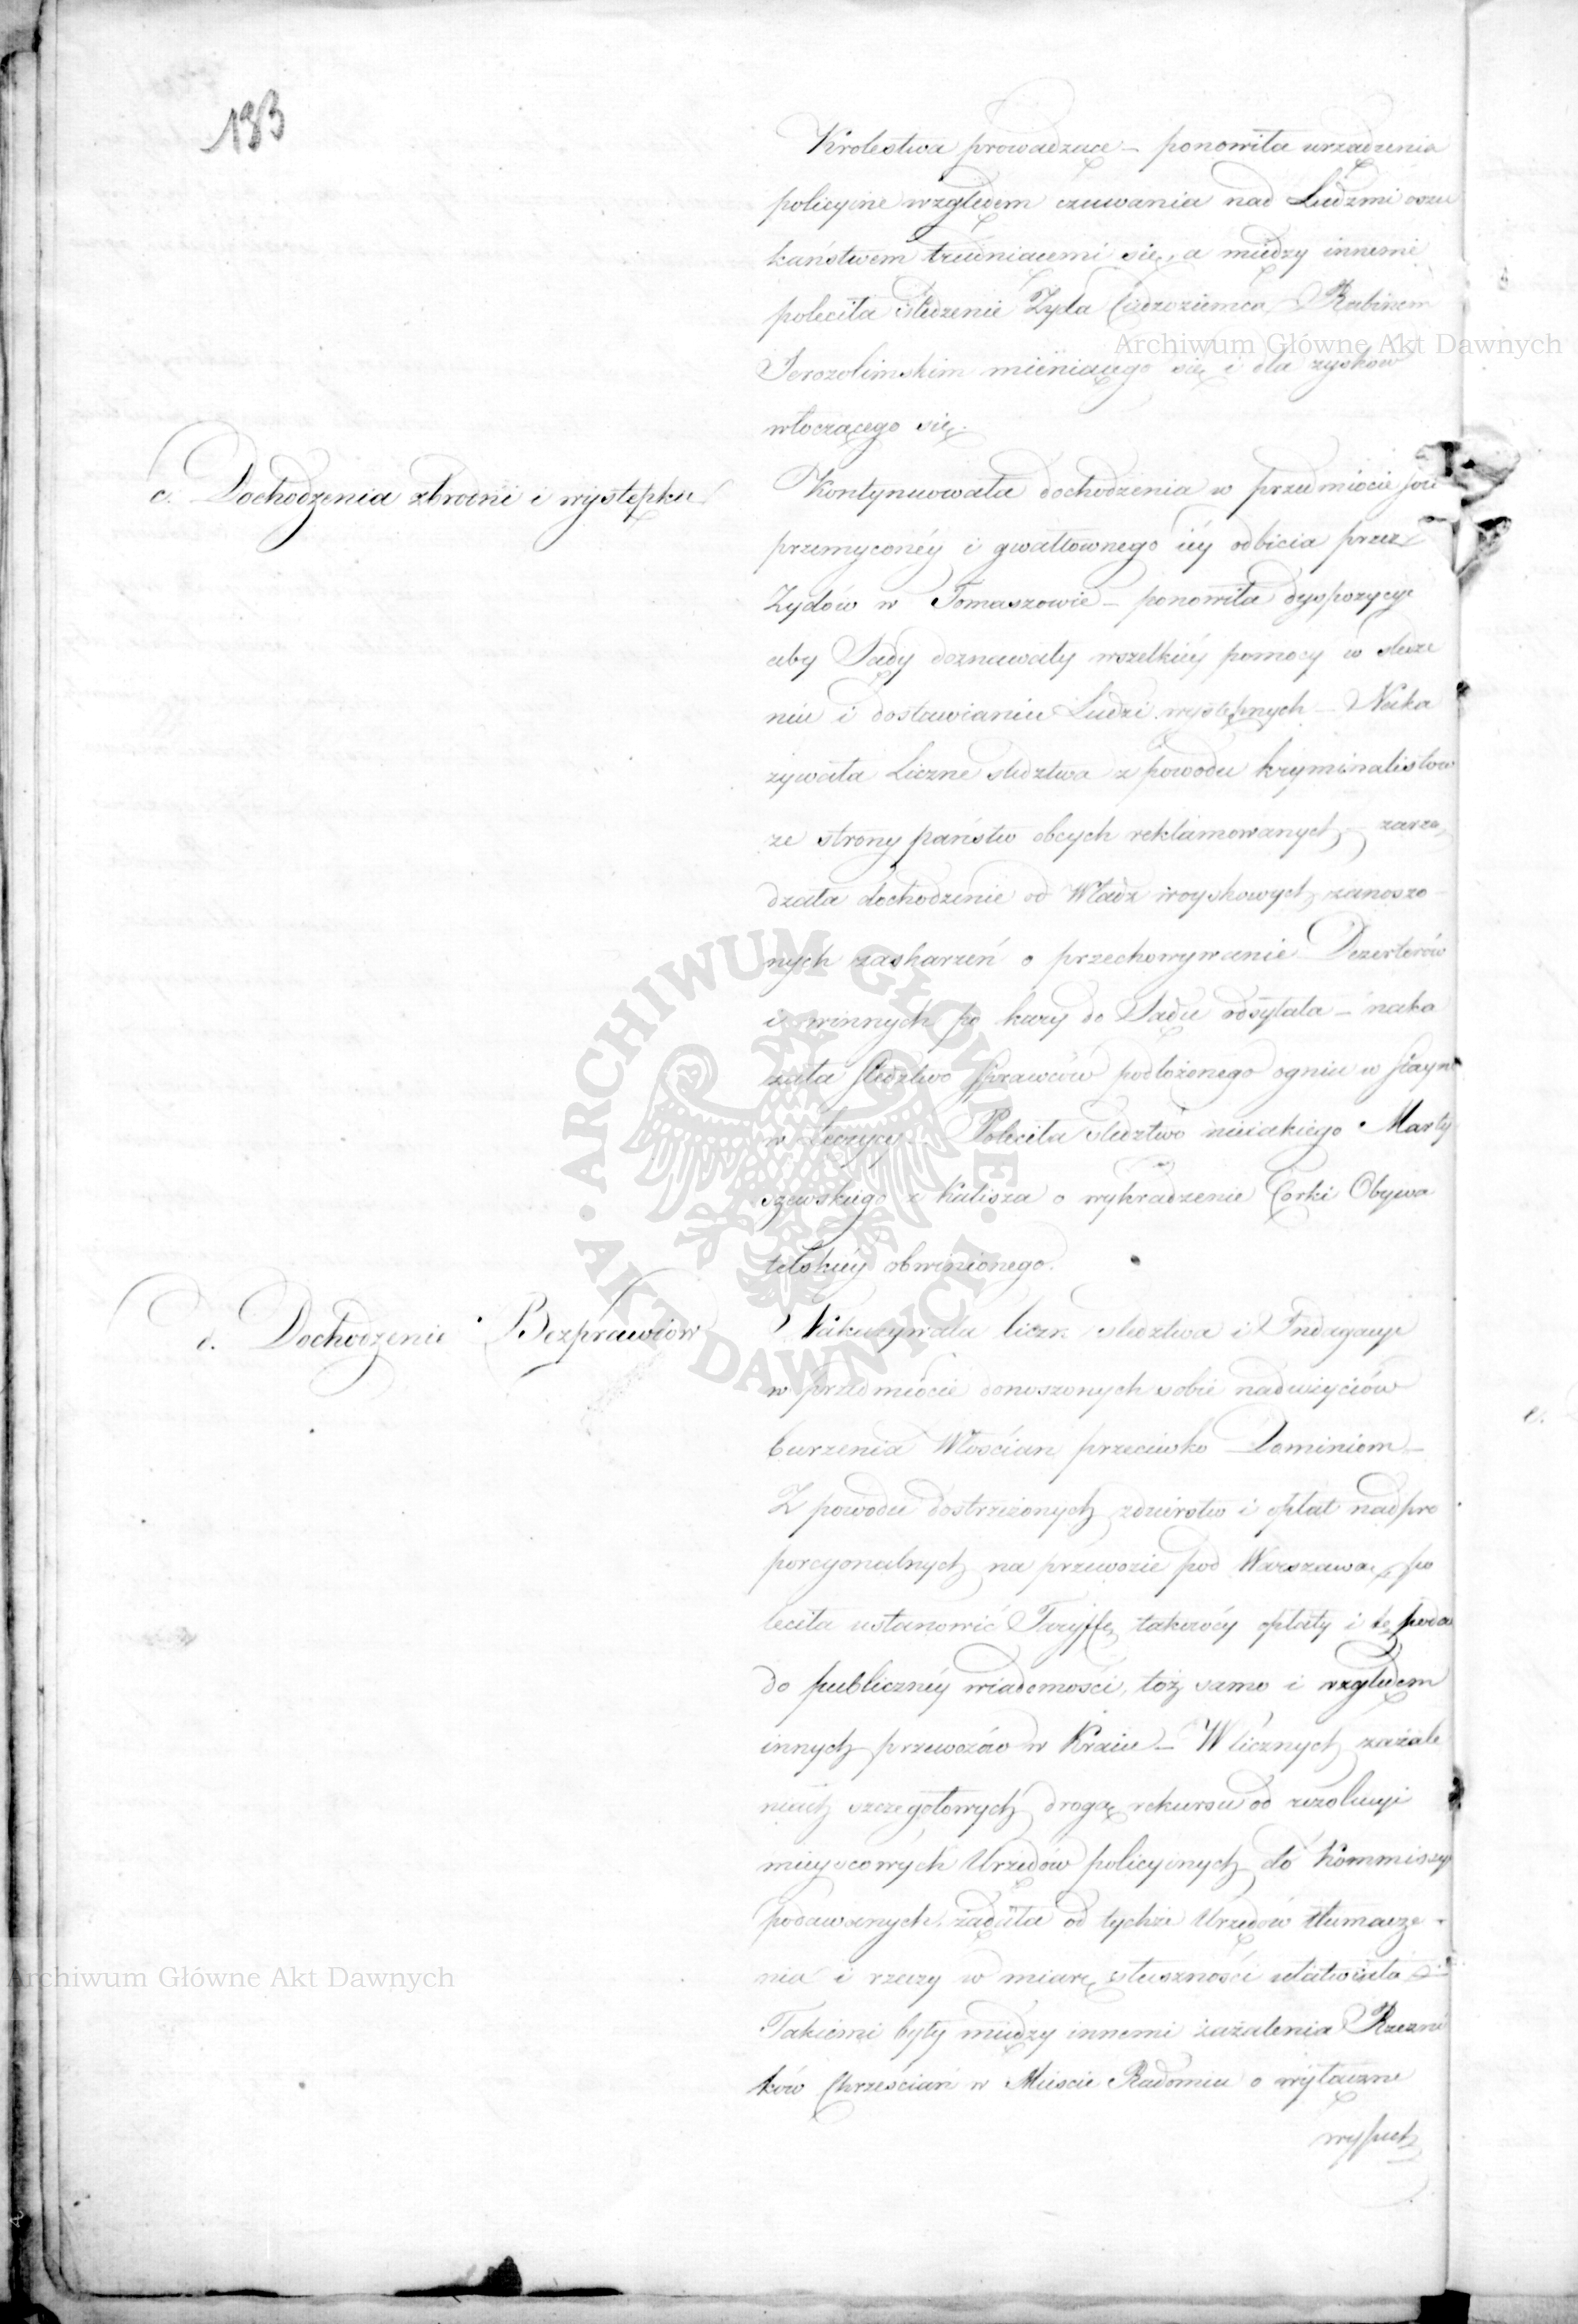 183
Krolestwa prowadzące – ponowiła urządzenia
policyjne względem czuwania nad Ludzmi oszu
kaństwem trudniącemi się, a między innemi
poleciła śledzenie Żyda Cudzoziemca, Rabinem
Jerozolimskim mieniącego się i dla zysków
włoczącego się.
c. Dochodzenia zbrodni i występku
Kontynuowała dochodzenia w przedmiocie
przemyconéy i gwałtownego iéy odbicia przez
Żydów w Tomaszowie – ponowiła dyspozycye
aby Sądy doznawały wszelkiéy pomocy w śledze
niu i dostawianiu Ludzi występnych – Naka
zywała Liczne śledztwa z powodu kryminalistow
ze strony państw obcych reklamowanych – zarzą
dzała dochodzenie od Władz woyskowych zanoszo
nych zaskarżeń o przechowywanie Dezerterów
i winnych po kary do Sądu odsyłała – naka
zała śledztwo sprawców podłożonego ognia w stayni
w Łęczycy. Poleciła śledztwo nieiakiego Marty
szewskiego z Kalisza o wykradzenie Corki Obywa
telskiéy obwinionego.
d. Dochodzenie Bezprawiów
Nakazywała liczne śledztwa i Indagacye
w przedmiocie donoszonych sobie nadużyciów
burzenia Włościan przeciwko Dominiom –
Z powodu dostrzeżonych zdzierstw i opłat nadpro
porcyonalnych na przewozie pod Warszawą, po
leciła ustanowić Taryffę takowéy opłaty i tę podać
do publicznéy wiadomości, toż samo i względem
innych przewozów w Kraiu – W licznych zażale
niach szczegołowych drogą rekursu od rezolucyi
mieyscowych Urzędów policyinych do Kommissyi
podawanych, żądała od tychże Urzędów tłumacze
nia i rzeczy w miarę słuszności ułatwiała –
Takiemi były między innemi zażalenia Rzeźni
ków Chrześcian w Mieście Radomiu o wyłączne
Archiwum Główne Akt Dawnych
ARCHIWUM GŁÓWNE AKT DAWNYCH
Archiwum Główne Akt Dawnych